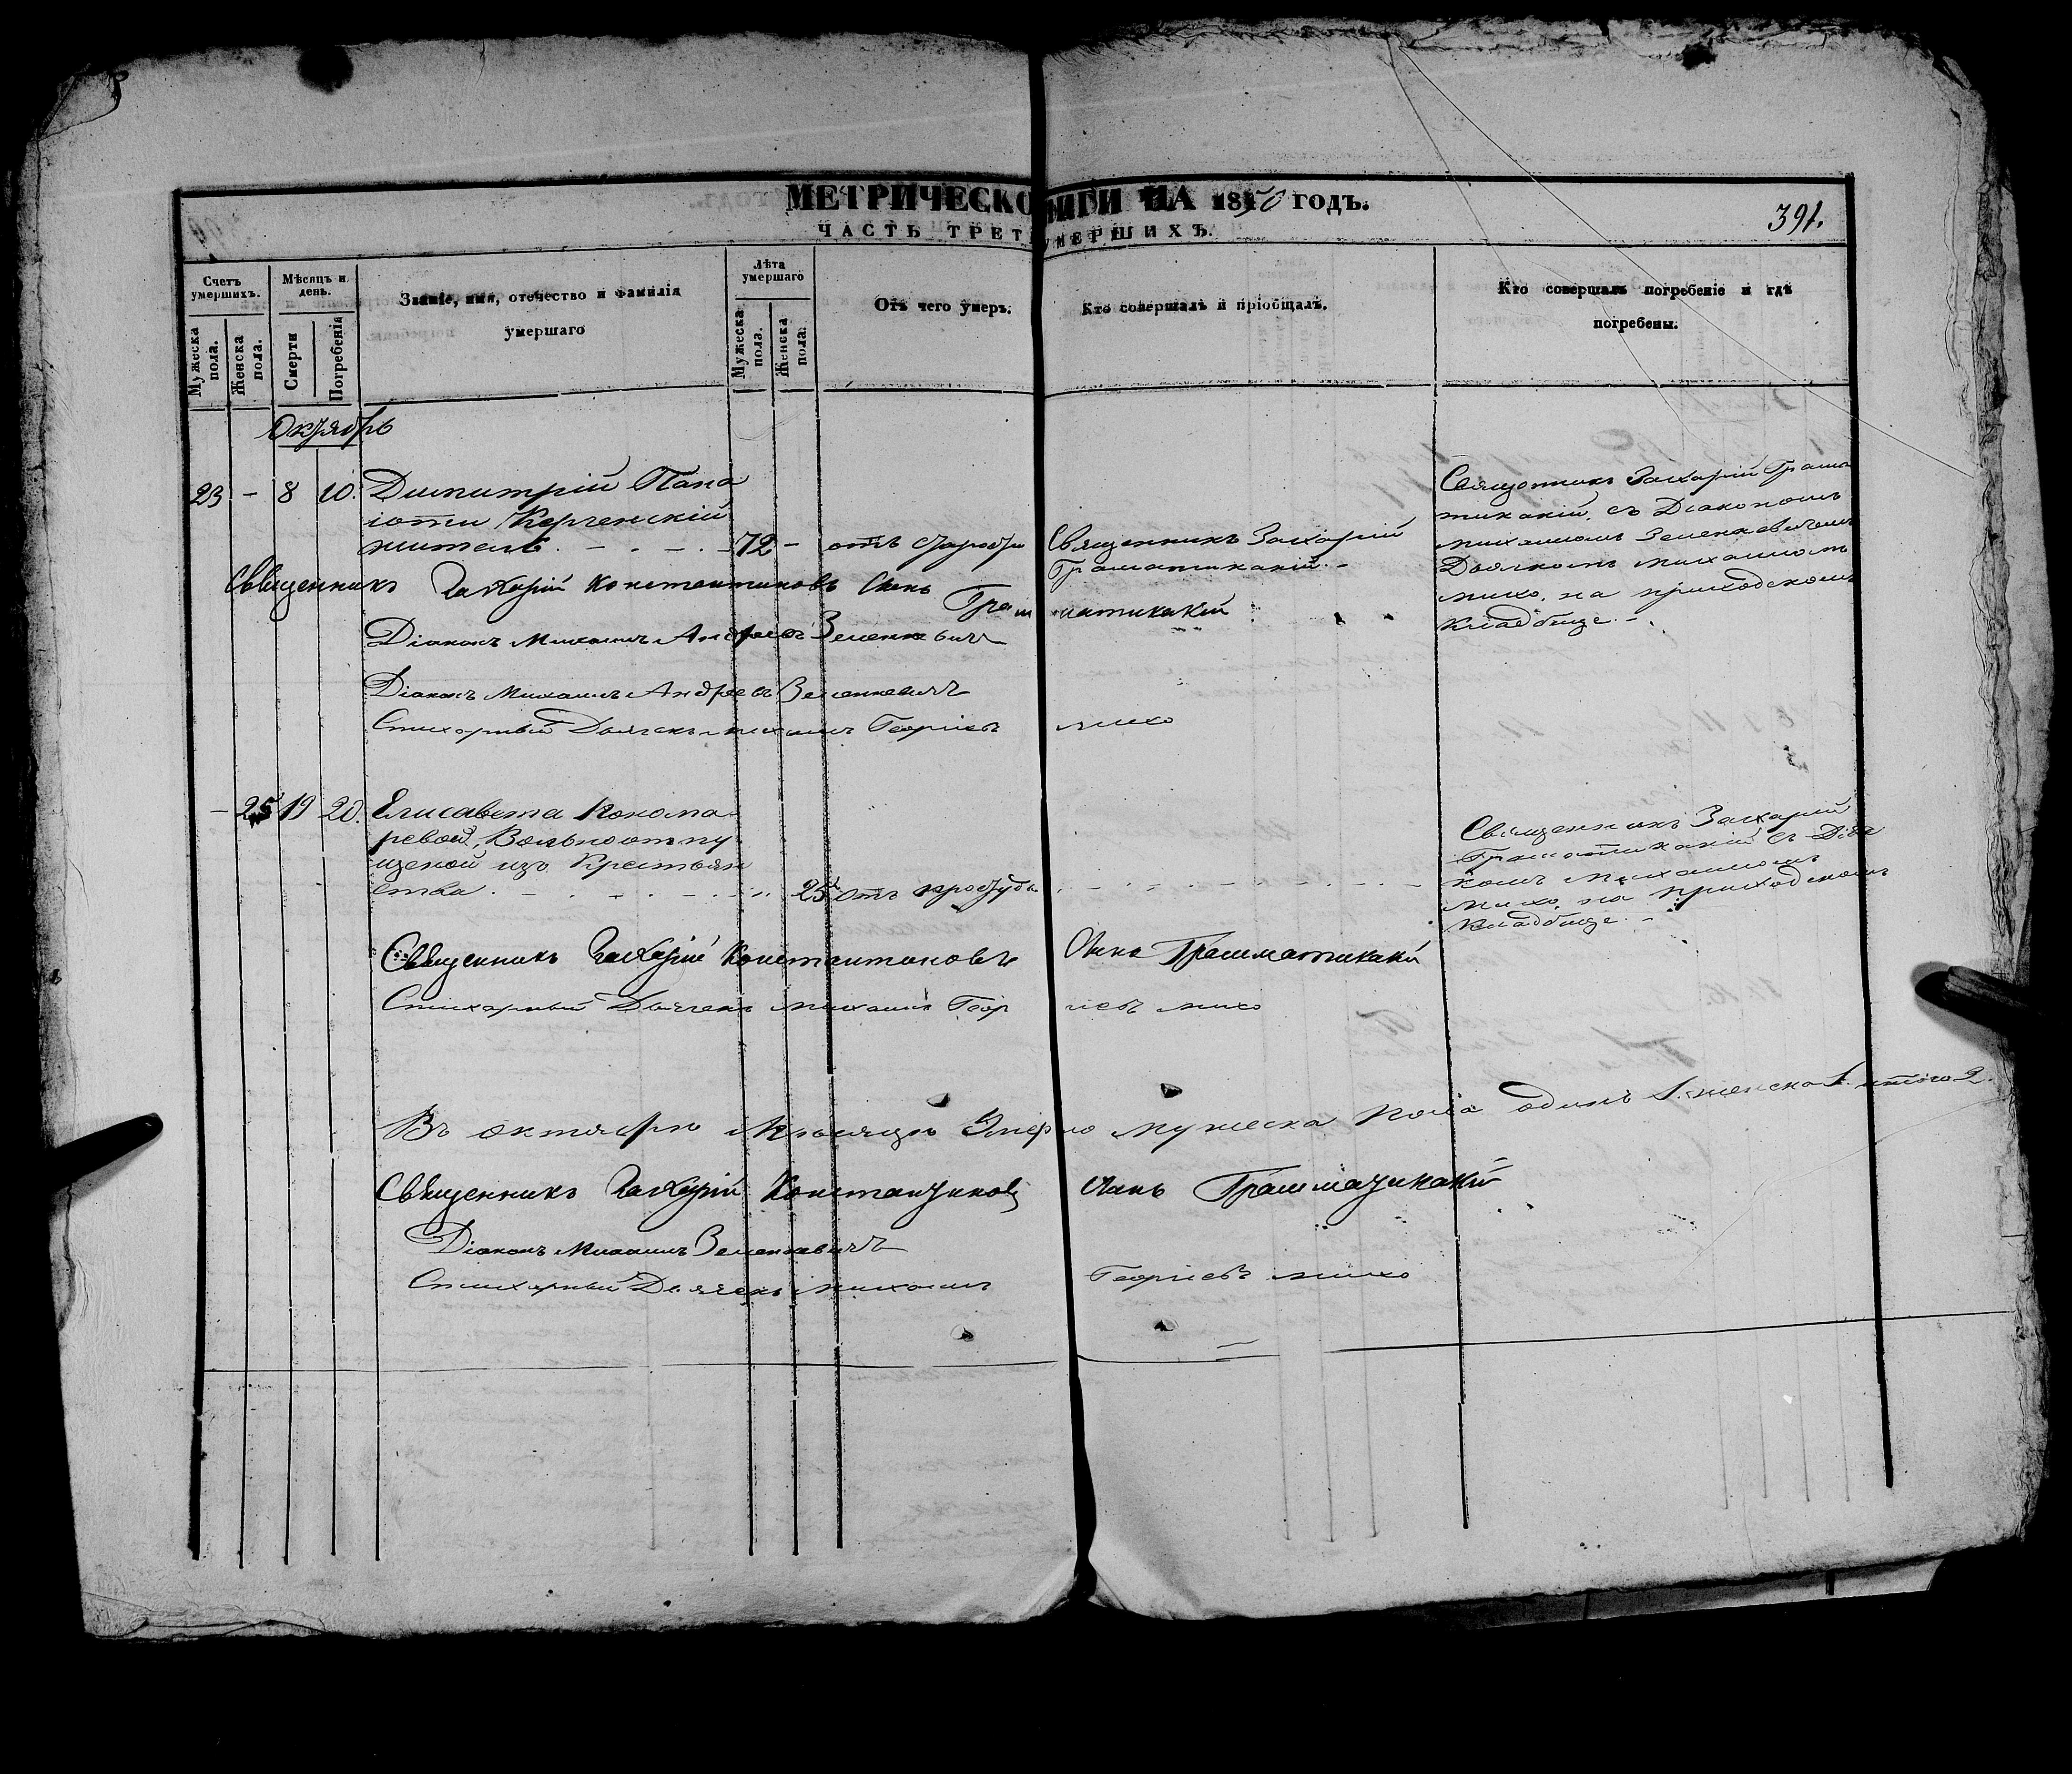 МЕТРИЧЕСКО НИГИ НА 1850 ГОДЪ.
391.
ЧАСТЬ ТРЕТ УМЕРШИХЪ.
Счетъ умершихъ.
Мѣсяцъ и день.
Званіе, имя, отечество и фамилія умершаго
Лѣта умершаго
Отъ чего умеръ.
Кто совершалъ и пріобщалъ.
Кто совершалъ погребеніе и гдѣ погребены.
Мужеска пола.
Женска пола.
Смерти
Погребенія
Мужеска пола.
Женска пола.
Октябрь
23 - 8 10. Димитрій Пана
іоти Керченскій
житель. - . - . - 72 - отъ старости
Священникъ Захарій
Граматикакій. -
Священникъ Захарій Грама
тикакій, съ Діакономъ
Михаиломъ Зеленкевичемъ
Дьячкомъ Михаиломъ
Михо, на приходскомъ
Кладбище. -
Священникъ Захарій Константиновъ Сынъ Грам матикакій
Діаконъ Михаилъ Андреевъ Зеленкевичъ
Діаконъ Михаилъ Андреевъ Зеленкевичъ
Стихарный Дьячекъ Михаилъ Георгіевъ Михо
- 25 19 20. Елисавета Понома-
рева, Вольноотпу
щеной изъ Крестьян
ства. - . - . - . - 25 отъ простуды
Священникъ Захарій
Граматикакій съ Дья
комъ Михаиломъ
Михо, на приходскомъ
Кладбище. -
Священникъ Захарій Константиновъ Сынъ Грамматикакій
Стихарный Дьячекъ Михаилъ Геор гіевъ Михо
Въ октябрѣ Мѣсяцѣ Умерло мужеска пола одинъ 1. женска 1. итого 2.
Священникъ Захарій Константиновъ Сынъ Грамматикакій
Діаконъ Михаилъ Зеленкевичъ
Стихарный Дьячекъ Михаилъ Георгіевъ Михо